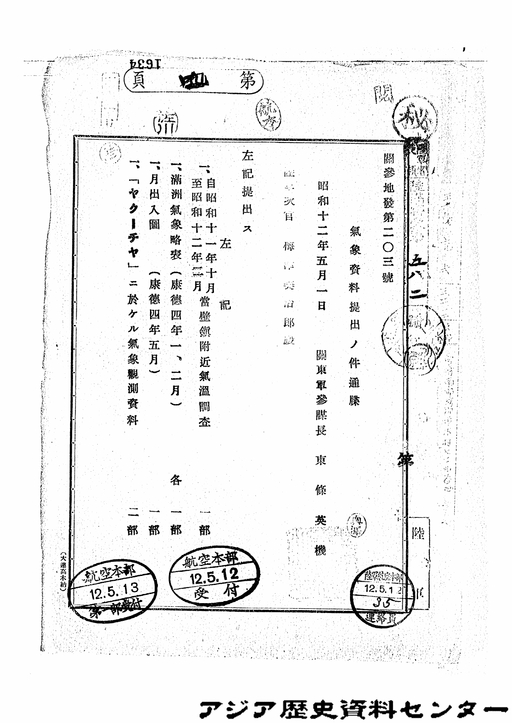 1634
第
頁
秘
五八二
第
陸
關參地發第二〇三號
氣象資料提出ノ件通牒
昭和十二年五月一日 關東軍參謀長 東條英機
次官 梅津美治郎殿
左記提出ス
左記
一、自昭和十一年十月
至昭和十二年三月 當壁鎭附近氣溫調査 一部
一、滿洲氣象略表(康德四年一、二月) 各一部
一、月出入圖 (康德四年五月) 一部
一、「ヤクーチヤ」ニ於ケル氣象觀測資料 二部
航空本部
12.5.13
第一部受付
航空本部
12.5.12
受付
12.5.12
35
連絡員
アジア歴史資料センター